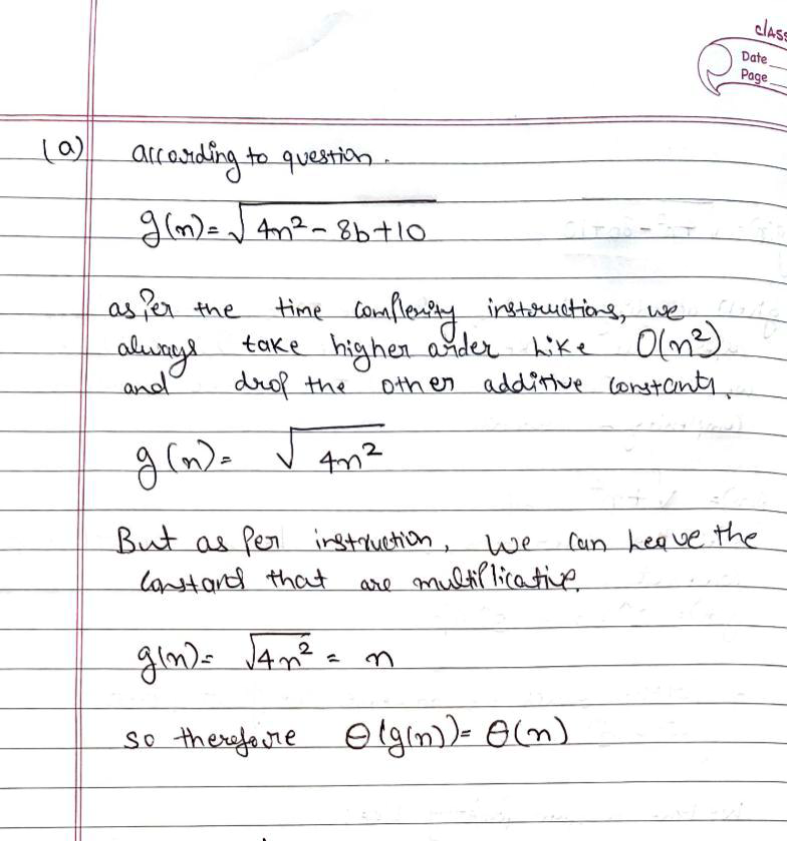 CLASS
Date
Page
(a) according to question.
g(n) = √4n² - 8b + 10
as per the time complexity instructions, we
always take higher order like O(n²)
and drop the other additive constants.
g(n) = √4n²
But as per instruction, we can leave the
constants that are multiplicative.
g(n) = √4n² = n
so therefore θ(g(n)) = θ(n)